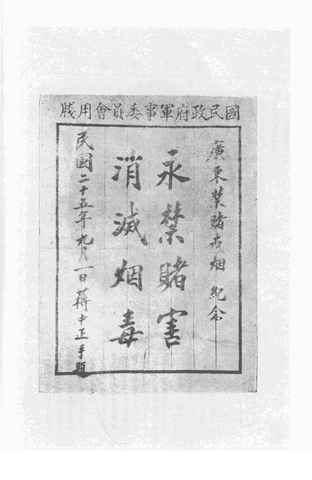 國民政府軍事委員會用牋
廣東禁賭戒烟紀念
永禁賭害
消滅烟毒
民國二十五年九月一日蔣中正手題